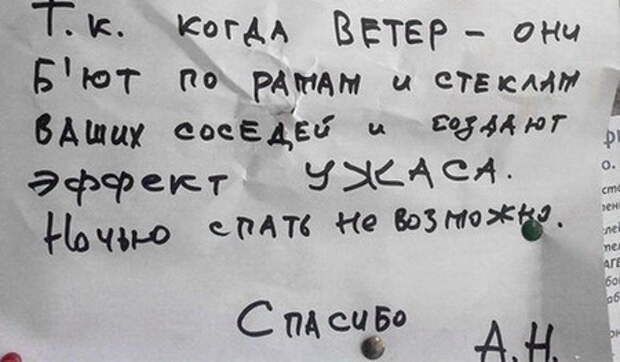 Т.к. когда ВЕТЕР – они
б'ют по рамам и стеклам
ваших соседей и создают
эффект УЖАСА.
Ночью спать не возможно.
Спасибо
А.Н.